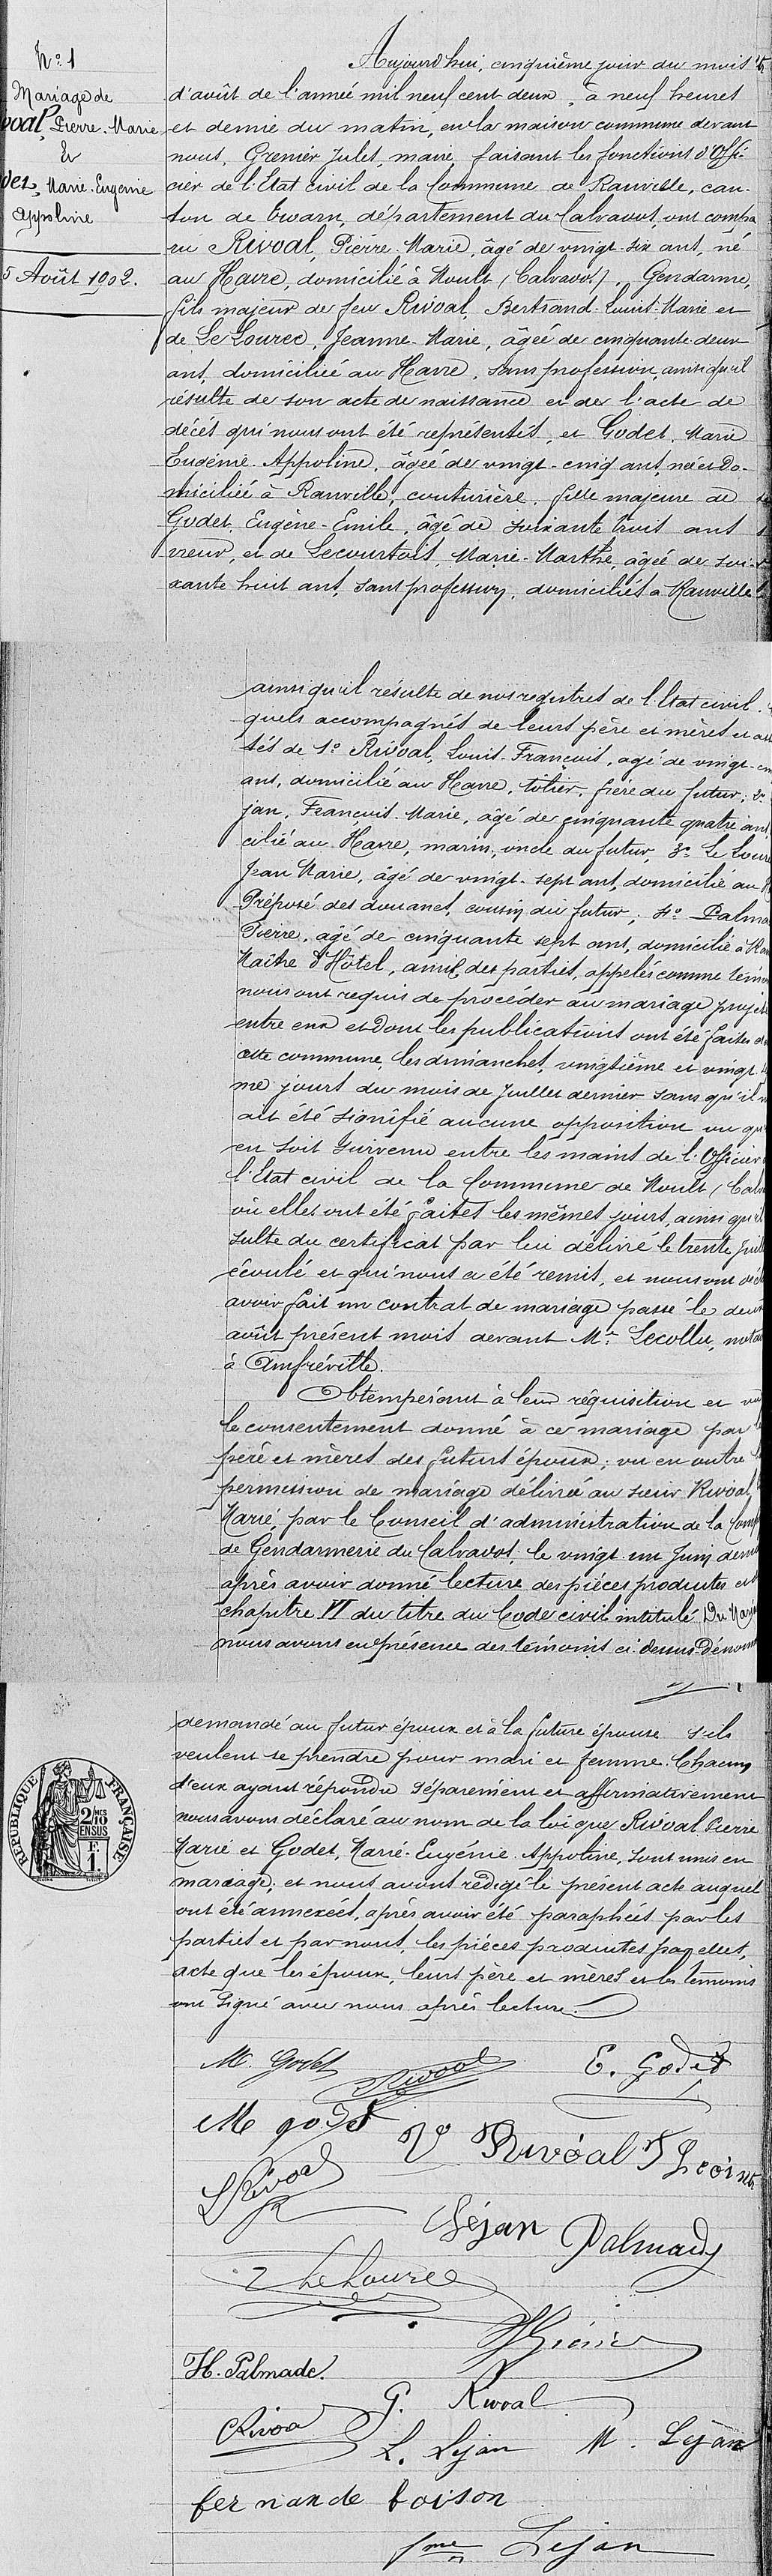 N° 1
Mariage de
voal, Pierre-Marie
Et
det, Marie-Eugénie
Appoline
5 Août 1902.
Aujourd'hui, cinquième jour du mois
d'août de l'année mil neuf cent deux, à neuf heures
et demie du matin, en la maison commune devant
nous, Grenier Jules, maire, faisant les fonctions d'Offi-
cier de l'Etat civil de la Commune de Ranville, can-
ton de Troarn, département du Calvados, ont compa
ru Rivoal, Pierre-Marie, âgé de vingt-six ans, né
au Havre, domicilié à Moult (Calvados), Gendarme,
fils majeur de feu Rivoal, Bertrand-Louis-Marie et
de Le Lourec, Jeanne-Marie, âgée de cinquante-deux
ans, domiciliée au Havre, sans profession, ainsi qu'il
résulte de son acte de naissance et de l'acte de
décès qui nous ont été représentés, et Godet, Marie
Eugénie-Appoline, âgée de vingt-cinq ans, née et Do-
miciliée à Ranville, couturière, fille majeure de
Godet, Eugène-Emile, âgé de soixante trois ans
et de Lecourtois, Marie-Marthe, âgée de soi-
xante huit ans, sans profession, domiciliés à Ranville
ainsi qu'il résulte de nos registres de l'Etat civil.
quels accompagnés de leurs père et mères et
tés de 1° Rivoal, Louis-François, âgé de vingt-
ans, domicilié au Havre, tôlier, frère du futur; 2°
jan, François-Marie, âgé de cinquante quatre ans,
cilié au Havre, marin, oncle du futur, 3° Le Loure
Jean Marie, âgé de vingt-sept ans, domicilié au
Préposé des douanes, cousin du futur; 4° Palma
Pierre, âgé de cinquante sept ans, domicilié à
Maître d'Hôtel, ami des parties, appelés comme témoi
nous ont requis de procéder au mariage projeté
entre eux et dont les publications ont été faites
cette commune, les dimanches, vingtième et vingt
me jours du mois de Juillet dernier sans qu'il
ait été signifié aucune opposition ou qu
en soit survenu entre les mains de l'Officier
l'Etat civil de la Commune de Moult (Calv
où elles ont été faites les mêmes jours, ainsi qu'il
sulte du certificat par lui délivré le trente Juil
écoulé et qui nous a été remis, et nous ont décl
avoir fait un contrat de mariage passé le deux
août présent mois devant Me Lecollu, nota
à Amfréville.
Obtempérant à leur réquisition et vu
le consentement donné à ce mariage par
père et mères des futurs époux; vu en outre
permission de mariage délivrée au sieur Rivoal,
Marie, par le Conseil d'administration de la Comp
de Gendarmerie du Calvados, le vingt-un Juin dernier
après avoir donné lecture des pièces produites et
chapitre VI du titre du Code civil intitulé Du Mari
nous avons en présence des témoins ci-dessus dénom
demandé au futur époux et à la future épouse s'ils
veulent se prendre pour mari et femme. Chacun
d'eux ayant répondu séparément et affirmativement
nous avons déclaré au nom de la loi que Rivoal Pierre
Marie et Godet, Marie-Eugénie-Appoline, sont unis en
mariage; et nous avons rédigé le présent acte auquel
ont été annexées, après avoir été paraphées par les
parties et par nous, les pièces produites par elles,
acte que les époux, leurs père et mères et les témoins
ont signé avec nous après lecture.
RÉPUBLIQUE FRANÇAISE
2/10 MES
EN SUS
1 F.
M. Godet Rivoal E. Godet
M godet Ve Rivoal
L Rivoal
Lejan Palmade
Le Lourec
J Grenier
H. Palmade.
G. Rivoal
CRivoa
L. Lejan M. Lejan
fernande boison
fme Lejan